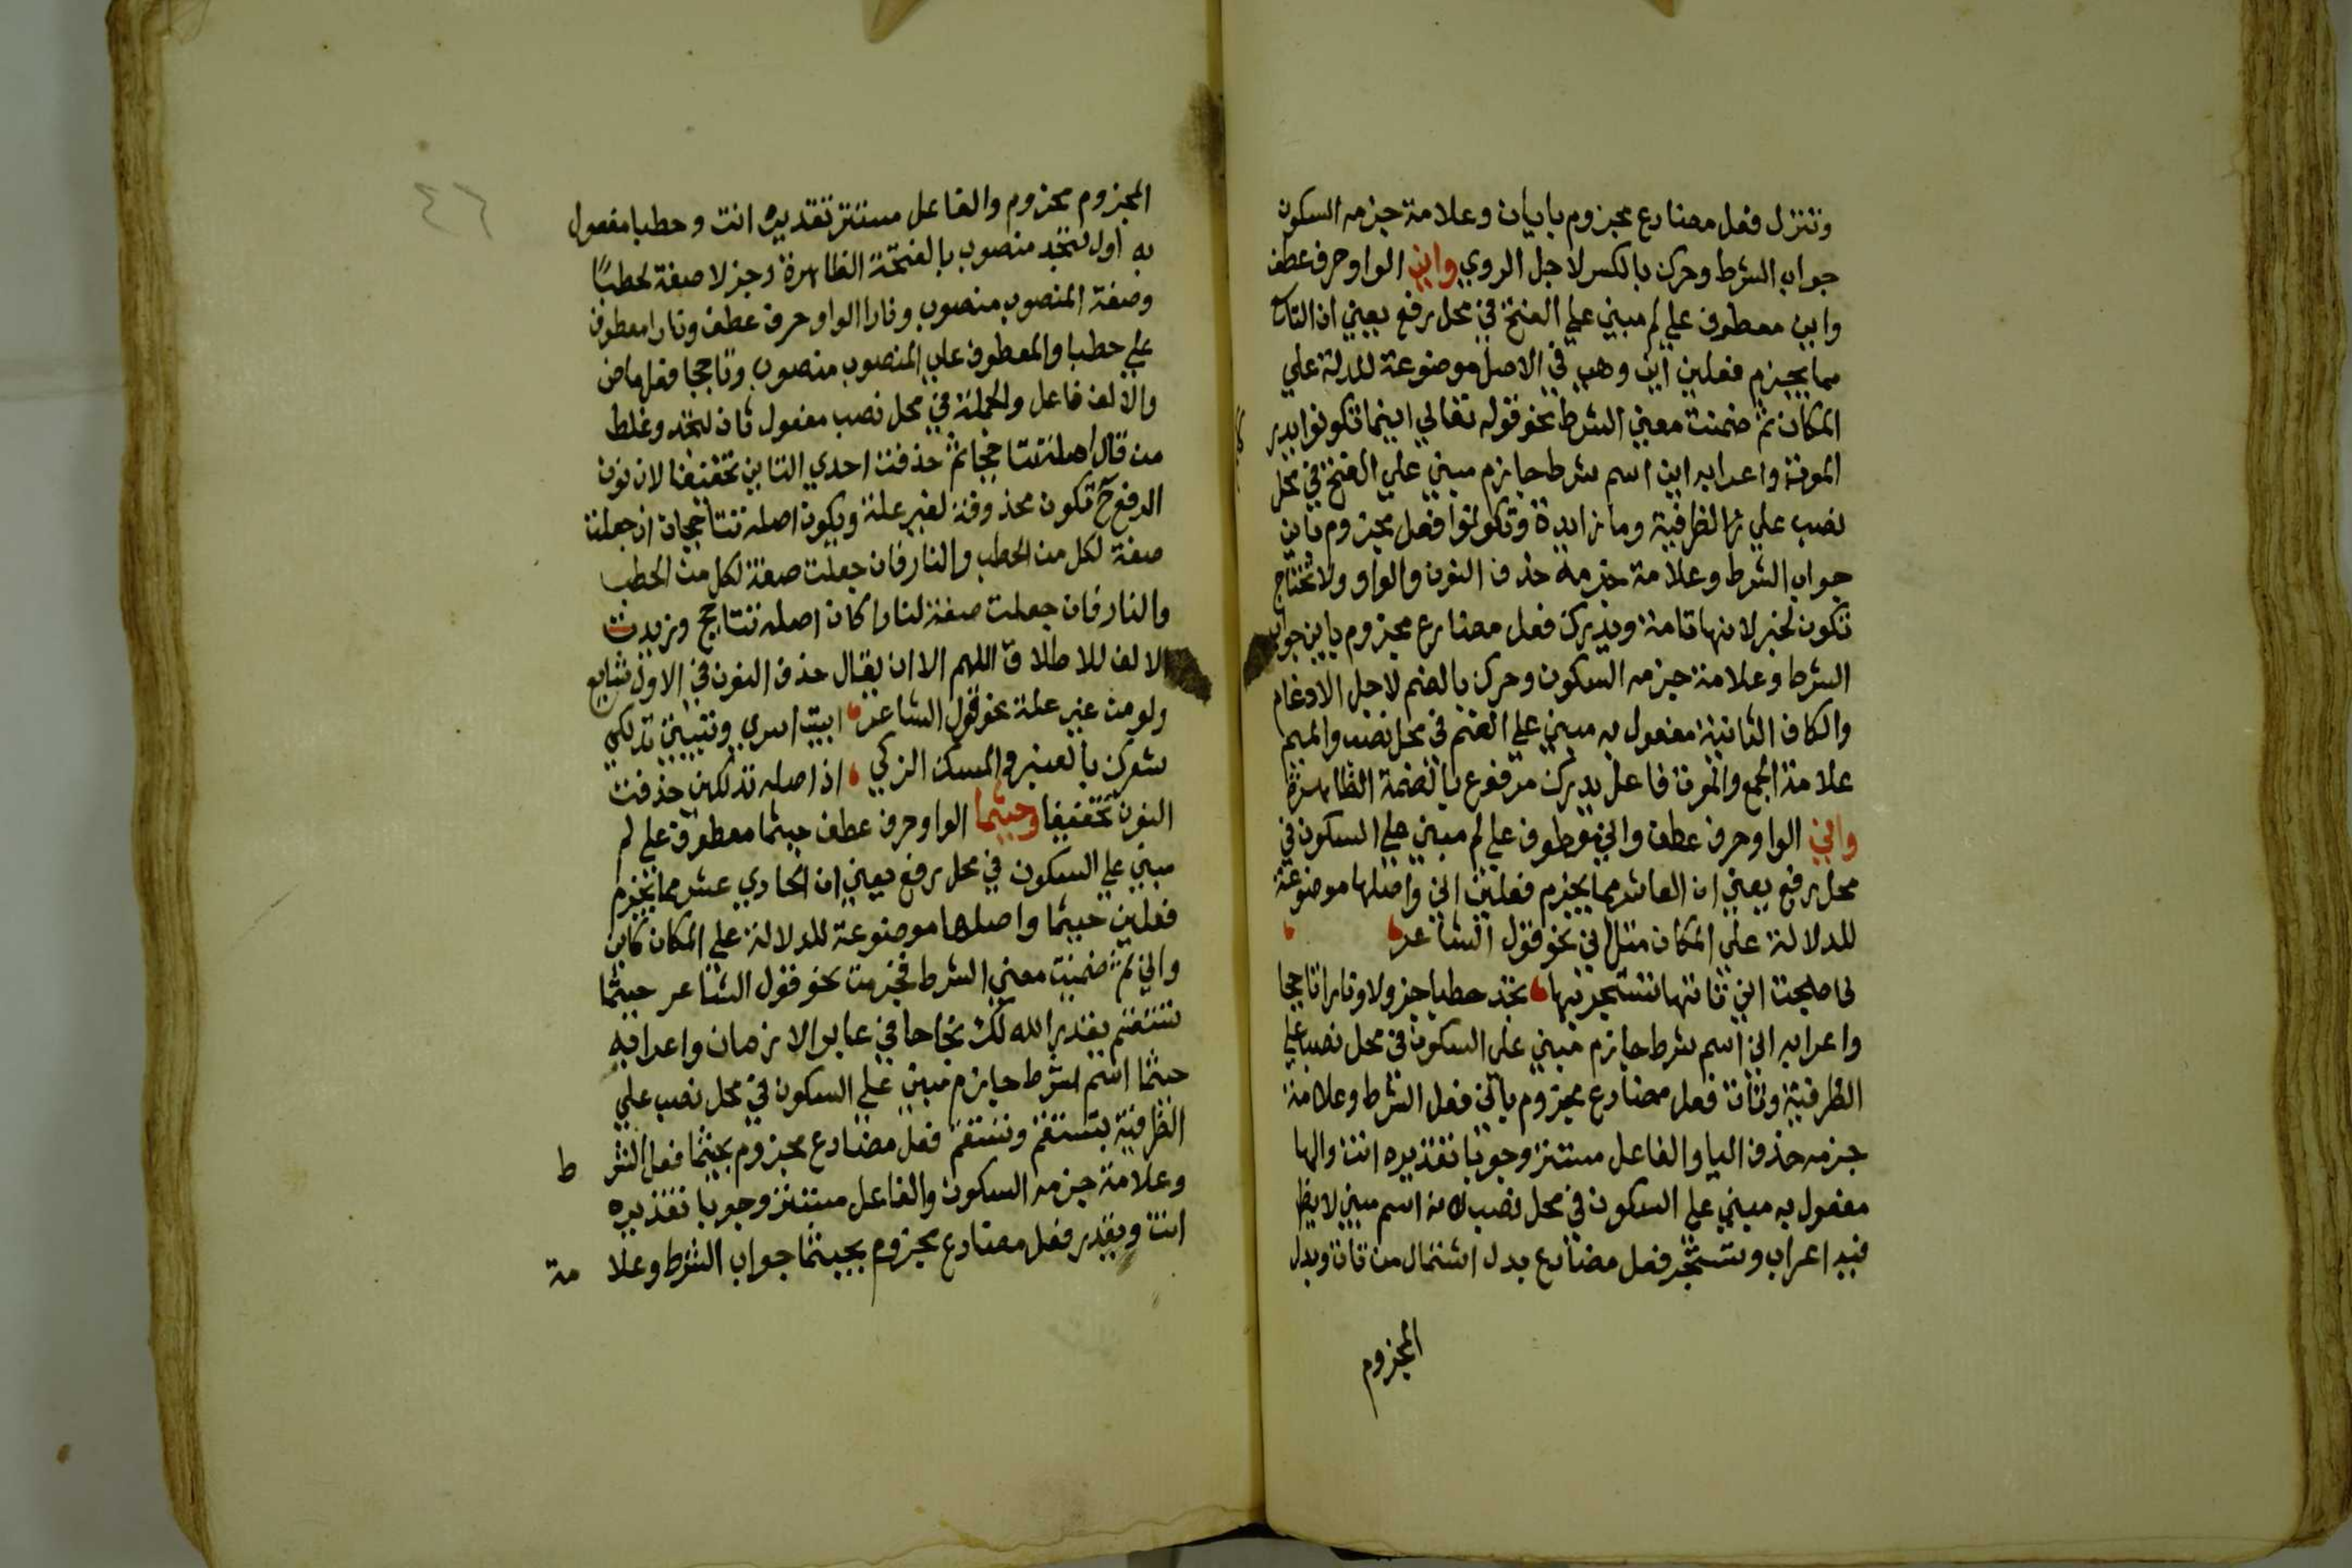 وتنزل فعل مضارع مجزوم بايان وعلامة جزمه السكون
جواب الشرط وحرك بالكسر لاجل الروي واين الواو حرف عطف
واين معطوف علي لم مبني علي الفتح في محل رفع يعني ان التاسع
مما يجزم فعلين اين وهي في الاصل موضوعة للدلة علي
المكان ثم ضمنت معني الشرط نحو قوله تعالي اينما تكونوا يدر كم
الموت واعرابه اين اسم شرط جازم مبني علي الفتح في محل
نصب علي الظرفية وما زايدة وتكونوا فعل مجزوم باين
جواب الشرط وعلامة جزمه حذف النون والواو ولا تحتاج
تكون لخبر لانها تامة ويدرك فعل مضارع مجزوم باين جواب
الشرط وعلامة جزمه السكون وحرك بالضم لاجل الادغام
والكاف الثانية مفعول به مبني علي الضم في محل نصب والميم
علامة الجمع والموت فاعل يدرك مرفوع بالضمة الظاهرة
واني الواو حرف عطف واني معطوف علي لم مبني علي السكون في
محل رفع يعني ان العاشر مما يجزم فعلين اني واصلها موضوعة
للدلالة علي المكان مثل اين نحو قول الشاعر
فاصبحت اني تاتها تستجر بها تجد حطبا جزولا ونارا تاججا
واعرابه اني اسم شرط جازم مبني علي السكون في محل نصب علي
الظرفية وتات فعل مضارع مجزوم باني فعل الشرط وعلامة
جزمه حذف اليا والفاعل مستتر وجوبا تقديره انت والها
مفعول به مبني علي السكون في محل نصب لانه اسم مبني لا يظهر
فيه اعراب وتستجر فعل مضارع بدل اشتمال من تات وبدل
المجزوم
٤٦
المجزوم مجزوم والفاعل مستتر تقديره انت وحطبا مفعول
به اول لتجد منصوب بالفتحة الظاهرة وجزلا صفة لحطبا
وصفة المنصوب منصوب ونارا الواو حرف عطف ونارا معطوف
علي حطبا والمعطوف علي المنصوب منصوب وتاججا فعل ماض
والالف فاعل والجملة في محل نصب مفعول ثان لتجد وغلط
من قال اصله تتاججا ثم حذفت احدي التاين تخفيفا لان نون
الرفع ح تكون محذوفة لغير علة ويكون اصله تتاججان ان جعلت
صفة لكل من الحطب والنار فان جعلت صفة لكل من الحطب
والنار فان جعلت صفة لنارا كان اصله تتاجج وزيدت
الالف للاطلاق اللهم الا ان يقال حذف النون في الاول شايع
ولو من غير علة نحو قول الشاعر ابيت اسري وتبيتي تدلكي
شعرك بالعنبر والمسك الزكي اذ اصله تدلكين حذفت
النون تخفيفا وحيثما الواو حرف عطف حيثما معطوف علي لم
مبني علي السكون في محل رفع يعني ان الحادي عشر مما يجزم
فعلين حيثما واصلها موضوعة للدلالة علي المكان كاين
واني ثم ضمنت معني الشرط فجزمت نحو قول الشاعر حيثما
تستقم يقدر الله لك نجاحا في غابر الازمان واعرابه
حيثما اسم شرط جازم مبني علي السكون في محل نصب علي
الظرفية بتستقم وتستقم فعل مضارع مجزوم بحيثما فعل الشر ط
وعلامة جزمه السكون والفاعل مستتر وجوبا تقديره
انت ويقدر فعل مضارع مجزوم بحيثما جواب الشرط وعلا مة